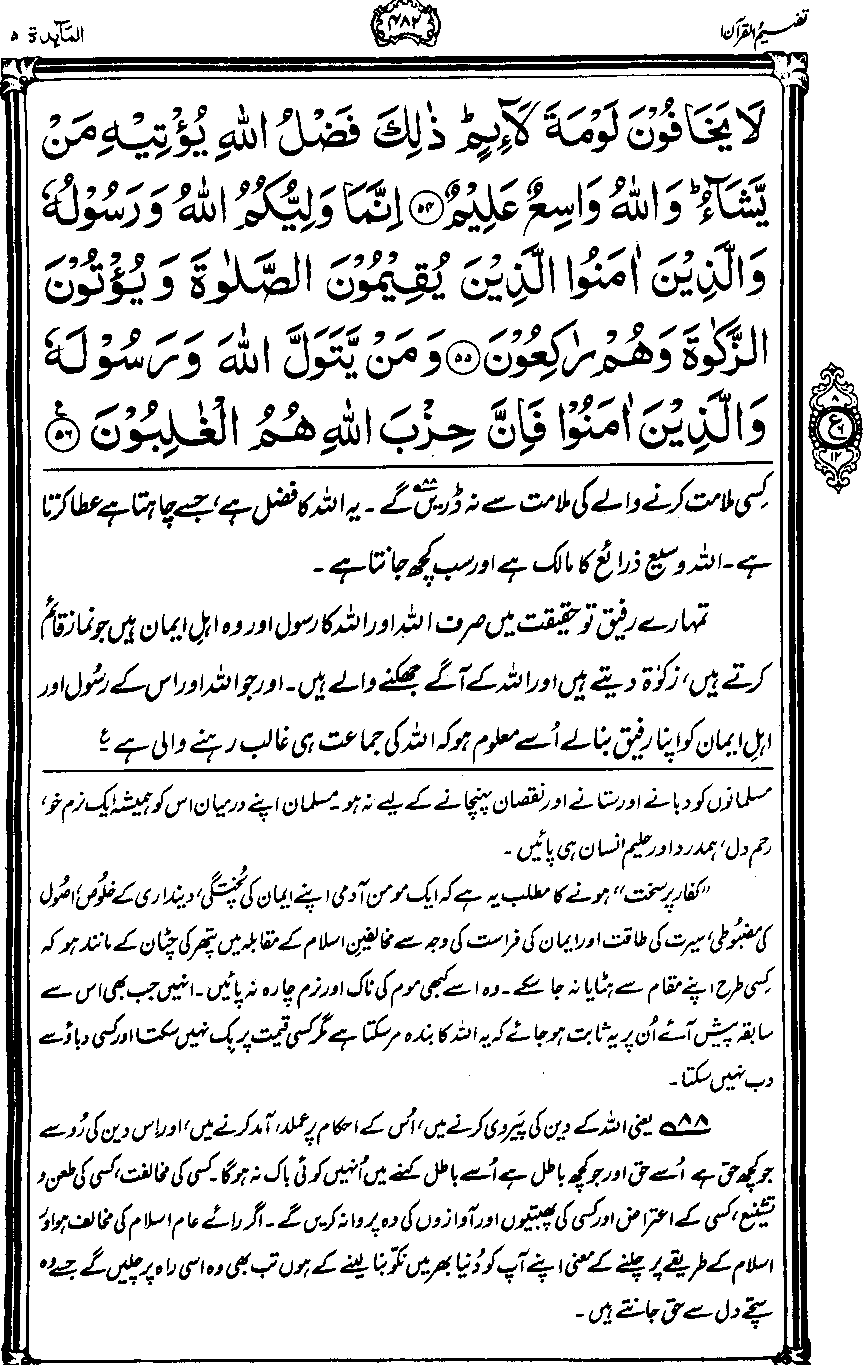 تفہیم القرآن ۱
۴۸۲
المآئدۃ ۵
لَا يَخَافُوْنَ لَوْمَةَ لَآىِٕمٍ ؕ ذٰلِكَ فَضْلُ اللّٰهِ يُؤْتِيْهِ مَنْ
يَّشَآءُ ؕ وَاللّٰهُ وَاسِعٌ عَلِيْمٌ ۝۵۴ اِنَّمَا وَلِيُّكُمُ اللّٰهُ وَرَسُوْلُهٗ
وَالَّذِيْنَ اٰمَنُوا الَّذِيْنَ يُقِيْمُوْنَ الصَّلٰوةَ وَيُؤْتُوْنَ
الزَّكٰوةَ وَهُمْ رٰكِعُوْنَ ۝۵۵ وَمَنْ يَّتَوَلَّ اللّٰهَ وَرَسُوْلَهٗ
وَالَّذِيْنَ اٰمَنُوْا فَاِنَّ حِزْبَ اللّٰهِ هُمُ الْغٰلِبُوْنَ ۝۵۶ ع
۸
ع
۱۲
کسی ملامت کرنے والے کی ملامت سے نہ ڈریں۸۸ گے۔ یہ اللہ کا فضل ہے، جسے چاہتا ہے عطا کرتا
ہے۔ اللہ وسیع ذرائع کا مالک ہے اور سب کچھ جانتا ہے۔
تمہارے رفیق تو حقیقت میں صرف اللہ اور اللہ کا رسول اور وہ اہلِ ایمان ہیں جو نماز قائم
کرتے ہیں، زکوٰۃ دیتے ہیں اور اللہ کے آگے جھکنے والے ہیں۔ اور جو اللہ اور اس کے رسُول اور
اہلِ ایمان کو اپنا رفیق بنالے اُسے معلوم ہو کہ اللہ کی جماعت ہی غالب رہنے والی ہے ع
مسلمانوں کو دبانے اور ستانے اور نقصان پہنچانے کے لیے نہ ہو۔ مسلمان اپنے درمیان اس کو ہمیشہ ایک نرم خو،
رحم دل، ہمدرد اور حلیم انسان ہی پائیں۔
”کفار پر سخت“ ہونے کا مطلب یہ ہے کہ ایک مومن آدمی اپنے ایمان کی پختگی، دینداری کے خلوص، اصُول
کی مضبُوطی، سیرت کی طاقت اور ایمان کی فراست کی وجہ سے مخالفینِ اسلام کے مقابلہ میں پتھر کی چٹان کے مانند ہو کہ
کسی طرح اپنے مقام سے ہٹایا نہ جا سکے۔ وہ اسے کبھی موم کی ناک اور نرم چارہ نہ پائیں۔ انہیں جب بھی اس سے
سابقہ پیش آئے اُن پر یہ ثابت ہو جائے کہ یہ اللہ کا بندہ مر سکتا ہے مگر کسی قیمت پر بک نہیں سکتا اور کسی دباؤ سے
دب نہیں سکتا۔
۸۸ یعنی اللہ کے دین کی پیروی کرنے میں، اُس کے احکام پر عملدرآمد کرنے میں، اور اِس دین کی رُو سے
جو کچھ حق ہے اُسے حق اور جو کچھ باطل ہے اُسے باطل کہنے میں اُنہیں کوئی باک نہ ہوگا۔ کسی کی مخالفت، کسی کی طعن و
تشنیع، کسی کے اعتراض اور کسی کی پھبتیوں اور آوازوں کی وہ پروا نہ کریں گے۔ اگر رائے عام اسلام کی مخالف ہو اور
اسلام کے طریقے پر چلنے کے معنی اپنے آپ کو دُنیا بھر میں نکّو بنا لینے کے ہوں تب بھی وہ اسی راہ پر چلیں گے جسے وہ
سچّے دل سے حق جانتے ہیں۔